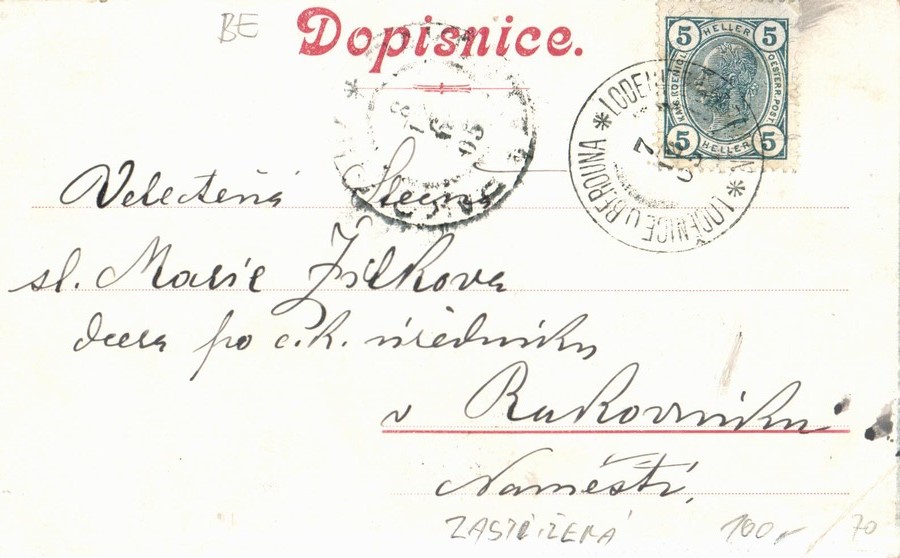 BE
Dopisnice.
5 HELLER 5
KAIS. KOENIGL. OESTERR. POST.
5 HELLER 5
* LODĚNICE U BEROUNA *
7
05
6
05
Velectěná Slečna
sl. Marie Žilková
dcera po c. k. úředníku
v Rakovníku
Náměstí.
ZASTŘIŽENÁ 100,- 70